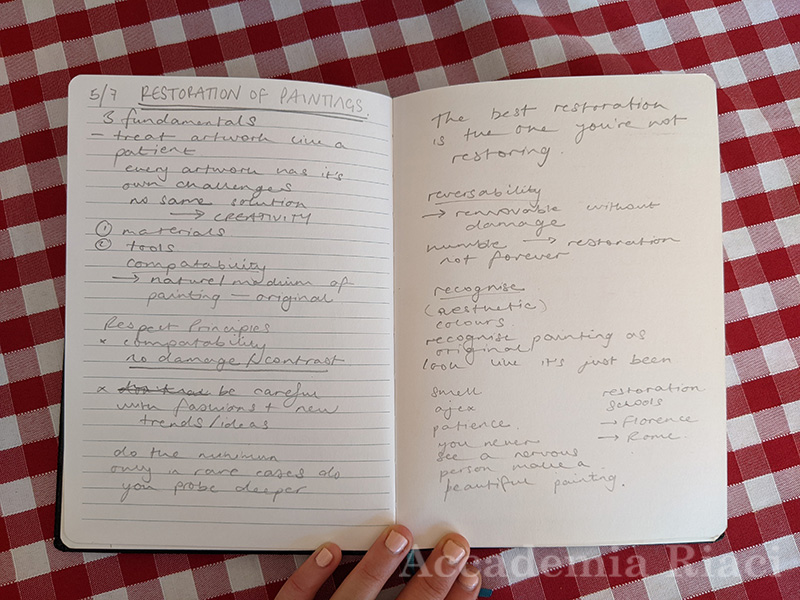 5/7 RESTORATION OF PAINTINGS.
3 fundamentals
- treat artwork like a
patient
every artwork has it's
own challenges
no same solution
→ CREATIVITY
① materials
② tools
compatability
→ nature/medium of
painting - original
Respect Principles
* compatability
no damage/contrast
* be careful
with fashions + new
trends/ideas
do the minimum
only in rare cases do
you probe deeper
The best restoration
is the one you're not
restoring.
reversability
→ removable without
damage
humble → restoration
not forever
recognise
(aesthetic)
colours
recognise painting as
original
look like it's just been
smell
ajax
patience.
you never
see a nervous
person make a
beautiful painting.
restoration
schools
→ Florence
→ Rome.
Accademia Riaci